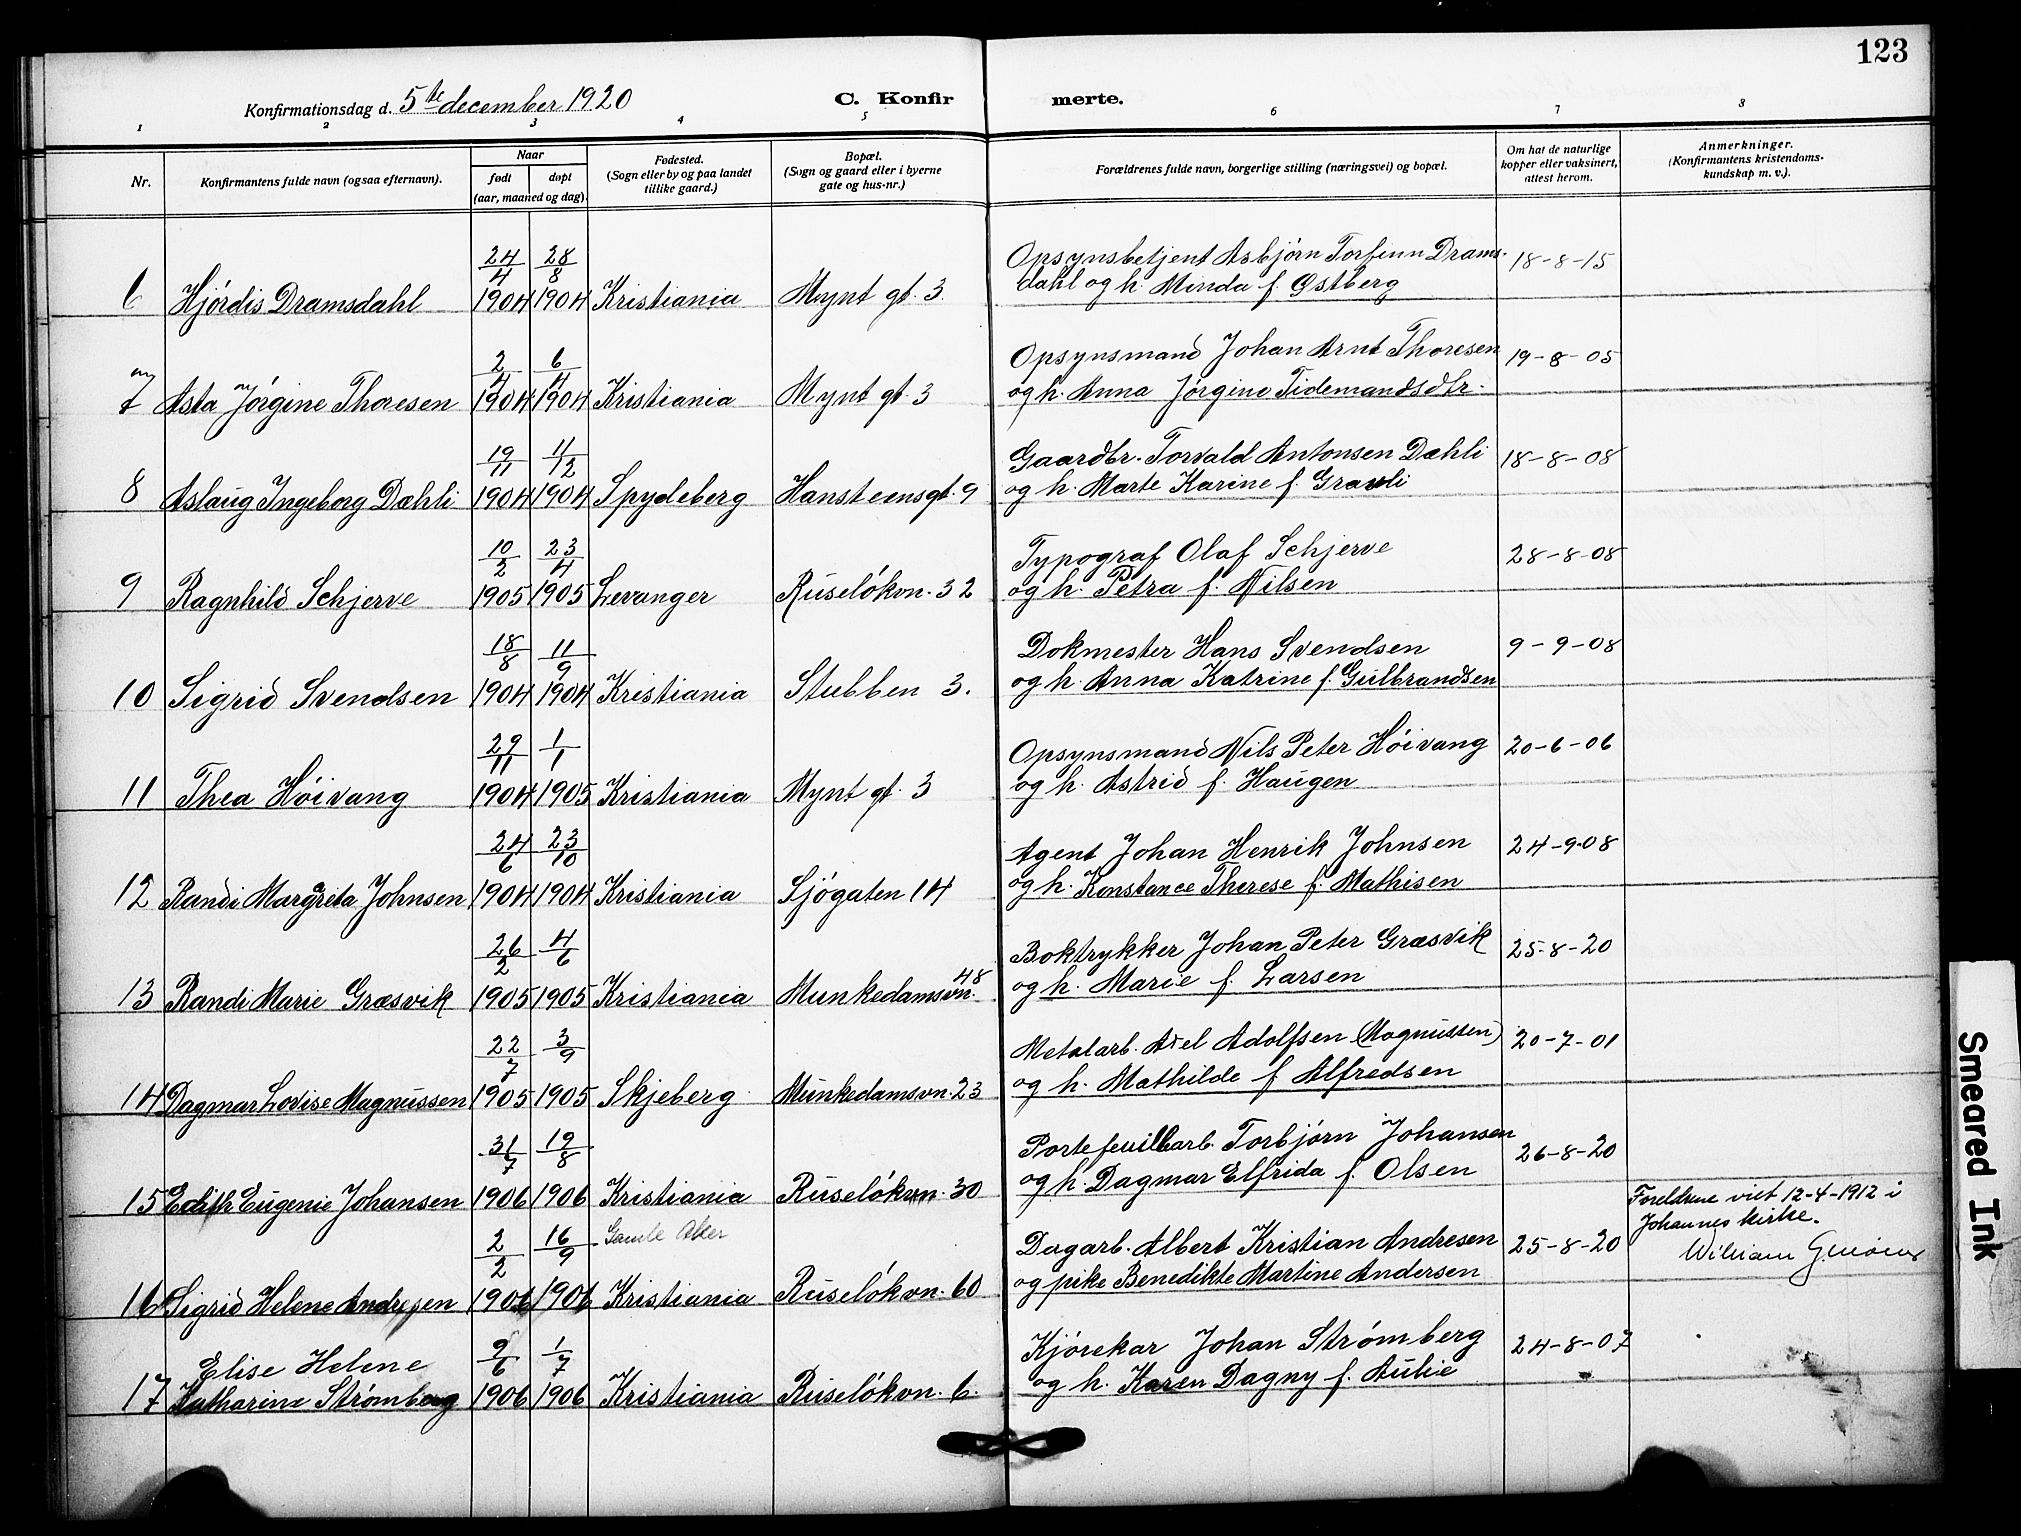 123
Konfirmationsdag d. 5te december 1920
C. Konfirmerte.
1 2 3 4 5 6 7 8
Nr.
Konfirmantens fulde navn (ogsaa efternavn).
Naar
født
døpt
(aar, maaned og dag).
Fødested.
(Sogn eller by og paa landet
tillike gaard.)
Bopæl.
(Sogn og gaard eller i byerne
gate og hus-nr.)
Forældrenes fulde navn, borgerlige stilling (næringsvei) og bopæl.
Om hat de naturlige
kopper eller vaksinert,
attest herom.
Anmerkninger.
(Konfirmantens kristendoms-
kundskap m. v.).
6 Hjördis Dramsdahl 24/4 1904 28/8 1904 Kristiania Mynt gt. 3.
Opsynsbetjent Asbjörn Torfinn Drams-
dahl og h. Minda f. Østberg
18-8-15
7 Asta Jörgine Thoresen 2/4 1904 6/4 1904 Kristiania Mynt gt. 3
Opsynsmand Johan Arnt Thoresen
og h. Anna Jörgine Tidemandsdtr.
19-8-05
8 Aslaug Ingeborg Dæhli 19/11 1904 11/12 1904 Spydeberg Hansteensgt. 9
Gaardbr. Torvald Antonsen Dæhli
og h. Marte Karine f. Gravli
18-8-08
9 Ragnhild Schjerve 10/2 1905 23/4 1905 Levanger Ruselökvn. 32
Typograf Olaf Schjerve
og h. Petra f. Nilsen
28-8-08
10 Sigrid Svendsen 18/8 1904 11/9 1904 Kristiania Stubben 3.
Dokmester Hans Svendsen
og h. Anna Katrine f. Gulbrandsen
9-9-08
11 Thea Höivang 29/11 1904 1/1 1905 Kristiania Mynt gt. 3
Opsynsmand Nils Peter Höivang
og h. Astrid f. Haugen
20-6-06
12 Randi Margreta Johnsen 24/6 1904 23/10 1904 Kristiania Sjögaten 14
Agent Johan Henrik Johnsen
og h. Konstance Therese f. Mathisen
24-9-08
13 Randi Marie Græsvik 26/2 1905 4/6 1905 Kristiania Munkedamsvn. 48
Boktrykker Johan Peter Græsvik
og h. Marie f. Larsen
25-8-20
14 Dagmar Lovise Magnussen 22/7 1905 3/9 1905 Skjeberg Munkedamsvn. 23
Metalarb. Axel Adolfsen (Magnussen)
og h. Mathilde f. Alfredsen
20-7-01
15 Edith Eugenie Johansen 31/7 1906 19/8 1906 Kristiania Ruselökvn. 30
Portefeuillarb. Torbjörn Johansen
og h. Dagmar Elfrida f. Olsen
26-8-20
16 Sigrid Helene Andresen 2/2 1906 16/9 1906 Gamle Aker Kristiania Ruselökvn. 60
Dagarb. Albert Kristian Andresen
og pike Benedikte Martine Andersen
25-8-20
Foreldrene viet 12-4-1912 i
Johannes kirke.
William
17 Elise Helene
Katharine Strömberg 9/6 1906 1/7 1906 Kristiania Ruselökvn. 6.
Kjörekar Johan Strömberg
og h. Karen Dagny f. Aulie
24-8-07
Smeared Ink